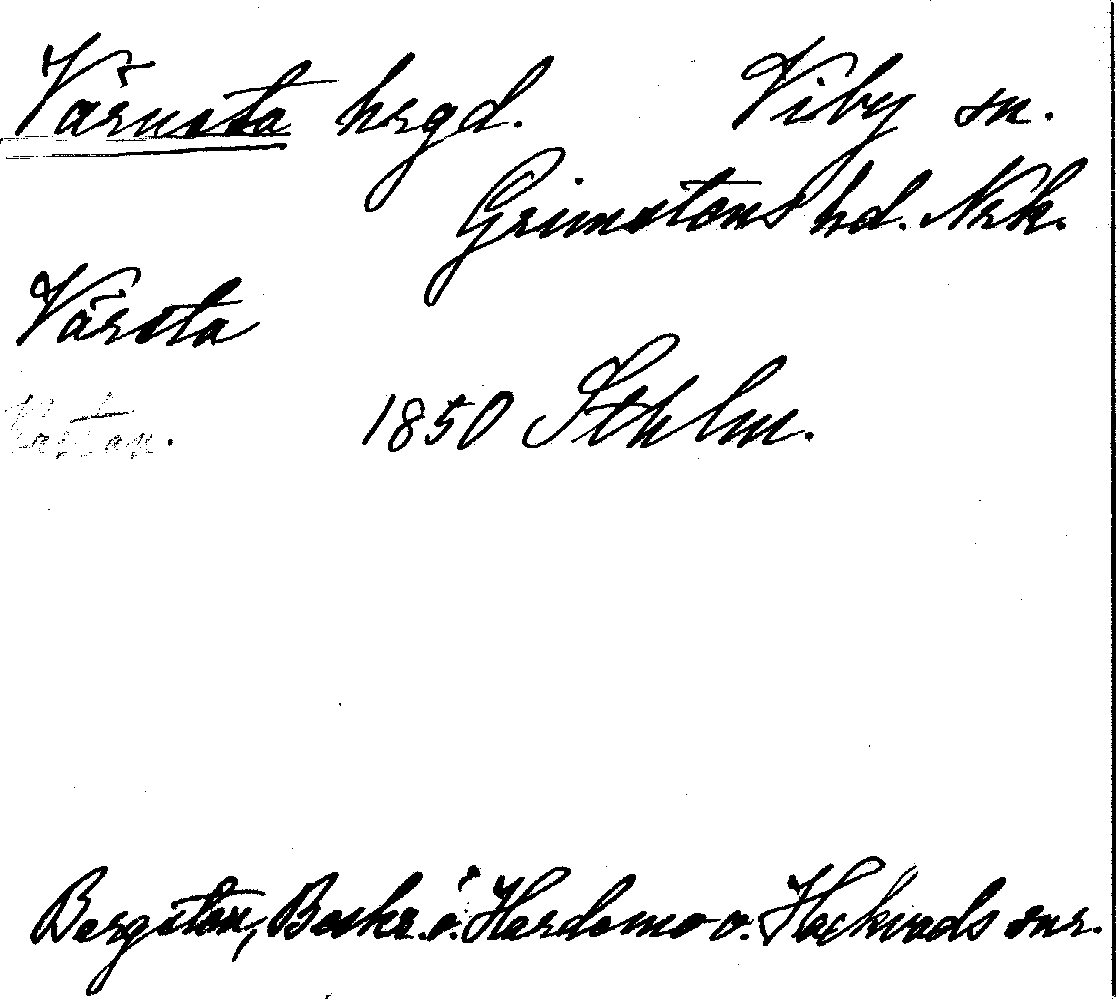 Värnsta hrgd. Viby sn.
Grimstens hd. Nrk.
Värsta
Kartan. 1850 Sthlm.
Bergsten, Beskr. ö. Hardemo o. Hackvads snr.